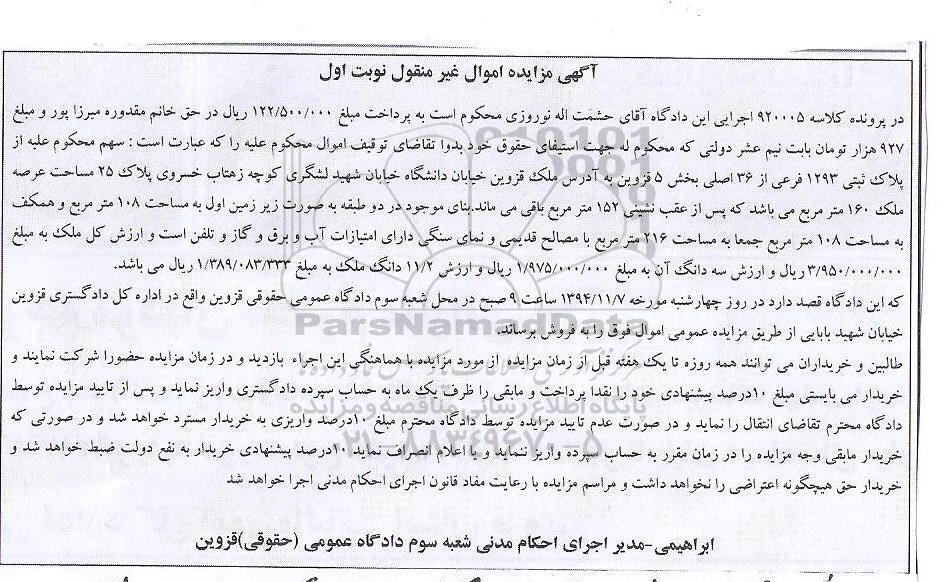 آگهی مزایده اموال غیر منقول نوبت اول
در پرونده کلاسه ۹۲۰۰۰۵ اجرایی این دادگاه آقای حشمت اله نوروزی محکوم است به پرداخت مبلغ ۱۲۲/۵۰۰/۰۰۰ ریال در حق خانم مقدوره میرزا پور و مبلغ
۹۲۷ هزار تومان بابت نیم عشر دولتی که محکوم له جهت استیفای حقوق خود بدوا تقاضای توقیف اموال محکوم علیه را که عبارت است : سهم محکوم علیه از
پلاک ثبتی ۱۲۹۳ فرعی از ۳۶ اصلی بخش ۵ قزوین به آدرس ملک قزوین خیابان دانشگاه خیابان شهید لشگری کوچه زهتاب خسروی پلاک ۲۵ مساحت عرصه
ملک ۱۶۰ متر مربع می باشد که پس از عقب نشینی ۱۵۲ متر مربع باقی می ماند.بنای موجود در دو طبقه به صورت زیر زمین اول به مساحت ۱۰۸ متر مربع و همکف
به مساحت ۱۰۸ متر مربع جمعا به مساحت ۲۱۶ متر مربع با مصالح قدیمی و نمای سنگی دارای امتیازات آب و برق و گاز و تلفن است و ارزش کل ملک به مبلغ
۳/۹۵۰/۰۰۰/۰۰۰ ریال و ارزش سه دانگ آن به مبلغ ۱/۹۷۵/۰۰۰/۰۰۰ ریال و ارزش ۱۱/۲ دانگ ملک به مبلغ ۱/۳۸۹/۰۸۳/۳۳۳ ریال می باشد.
که این دادگاه قصد دارد در روز چهارشنبه مورخه ۱۳۹۴/۱۱/۷ ساعت ۹ صبح در محل شعبه سوم دادگاه عمومی حقوقی قزوین واقع در اداره کل دادگستری قزوین
خیابان شهید بابایی از طریق مزایده عمومی اموال فوق را به فروش برساند.
ParsNamadData
طالبین و خریداران می توانند همه روزه تا یک هفته قبل از زمان مزایده از مورد مزایده با هماهنگی این اجراء بازدید و در زمان مزایده حضورا شرکت نمایند و
خریدار می بایستی مبلغ ۱۰درصد پیشنهادی خود را نقدا پرداخت و مابقی را ظرف یک ماه به حساب سپرده دادگستری واریز نماید و پس از تایید مزایده توسط
پایگاه اطلاع رسانی مناقصه و مزایده
دادگاه محترم تقاضای انتقال را نماید و در صورت عدم تایید مزایده توسط دادگاه محترم مبلغ ۱۰درصد واریزی به خریدار مسترد خواهد شد و در صورتی که
۰۲۱-۸۸۳۴۹۶۷۰-۵
خریدار مابقی وجه مزایده را در زمان مقرر به حساب سپرده واریز ننماید و یا اعلام انصراف نماید ۱۰درصد پیشنهادی خریدار به نفع دولت ضبط خواهد شد و
خریدار حق هیچگونه اعتراضی را نخواهد داشت و مراسم مزایده با رعایت مفاد قانون اجرای احکام مدنی اجرا خواهد شد
ابراهیمی-مدیر اجرای احکام مدنی شعبه سوم دادگاه عمومی (حقوقی)قزوین